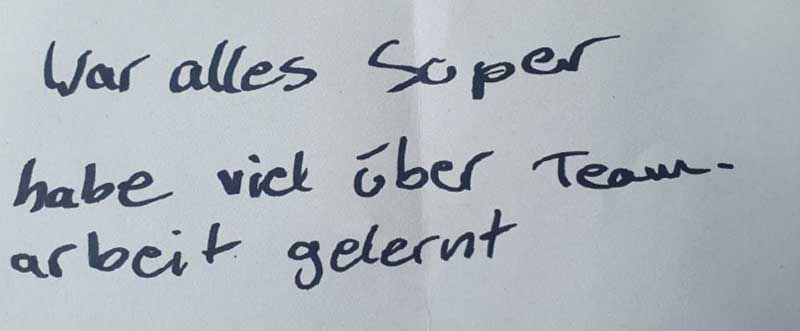 War alles Super
habe viel über Team-
arbeit gelernt